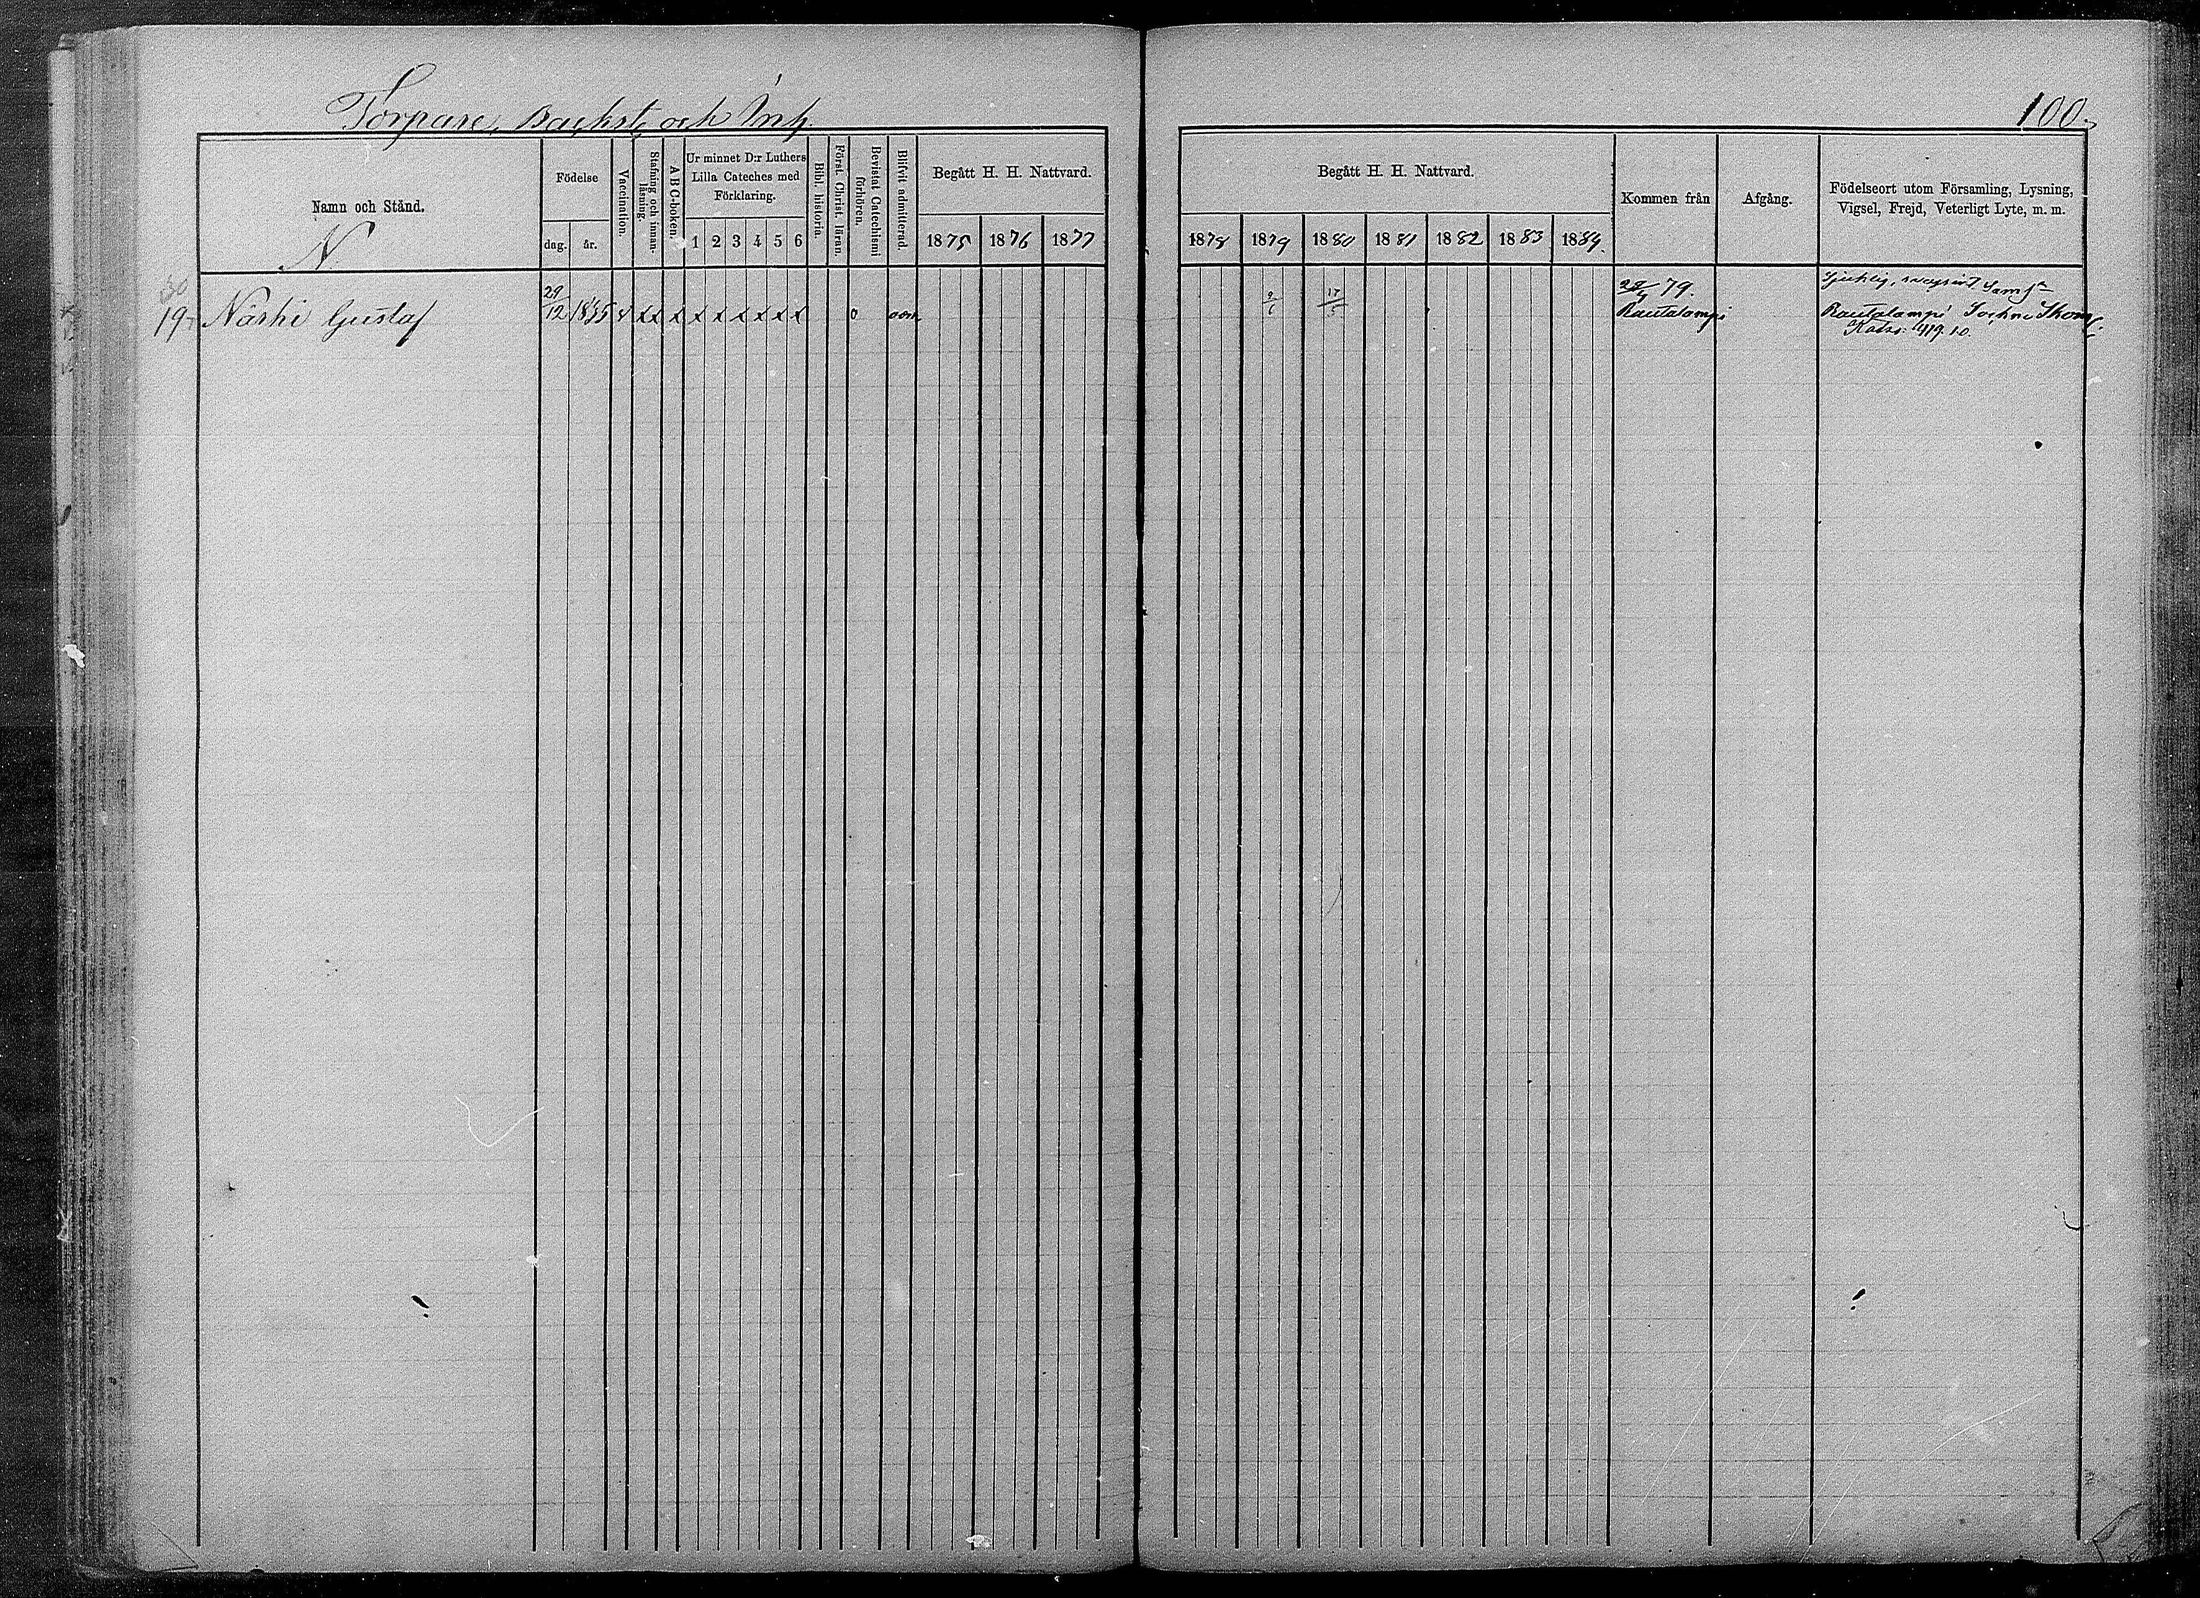 Torpare, Backst. och Inh.
100.
Namn och Stånd.
N
Födelse
dag. år.
Vaccination.
Stafning och innan-läsning.
A B C-boken.
Ur minnet D:r Luthers
Lilla Cateches med
Förklaring.
1 2 3 4 5 6
Bibl. historia.
Först. Christ. läran.
Bevistat Catechismi förhören.
Blifvit admitterad.
Begått H. H. Nattvard.
1875 1876 1877
Begått H. H. Nattvard.
1878 1879 1880 1881 1882 1883 1884.
Kommen från
Afgång.
Födelseort utom Församling, Lysning,
Vigsel, Frejd, Veterligt Lyte, m. m.
30
19 Närhi Gustaf 29/12 1855 x x x x x x x x x x 0
9/6 17/5
79.
Rautalampi
Sjuklig,
Rautalampi
419. 10.